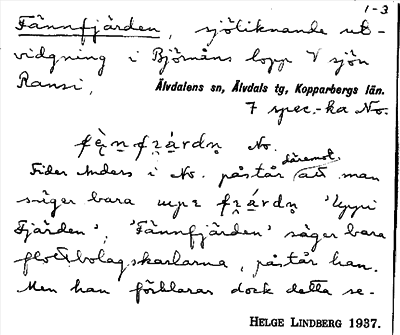 1-3
Fännfjärden, sjöliknande ut-
vidgning i Björnåns lopp V sjön
Ransi, Älvdalens sn, Älvdals tg, Kopparbergs län.
7 spec.-ka No.
No.
däremot
Fider Anders i No. påstår att man
säger bara uppɪ 'Uppi
Fjärden', 'Fännfjärden' säger bara
flottbolagskarlarna, påstår han.
Men han förklarar dock detta se-
HELGE LINDBERG 1937.